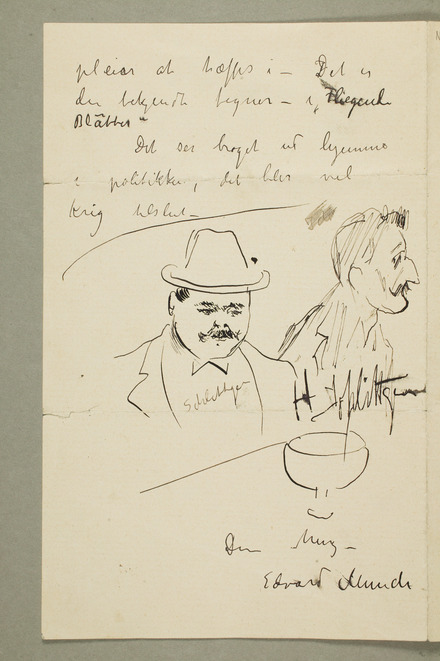 pleier at træffes i — Det er
den bekjendte tegner — i „Fliegende
Blätter"
Det ser broget ud hjemme
i politikken, det blir vel
Krig tilslut —
Schlittgen
H Schlittgen
Din
Edvard Munch